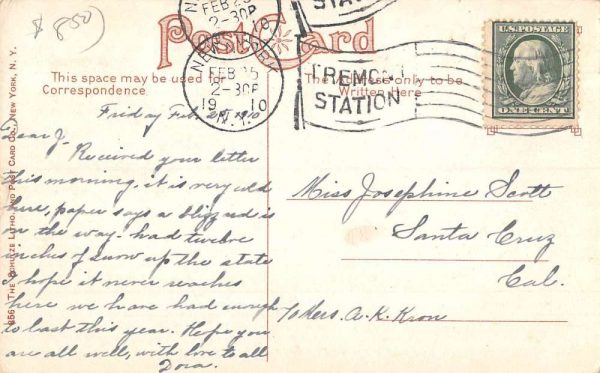 $ 8.50
Post Card
NEW YORK, N.Y.
FEB 25
2-30P
1910
TREMONT
STATION
U.S. POSTAGE
ONE CENT
This space may be used for
Correspondence
The Address only to be
Written Here
8561 THE SCHULZE LITHO. AND POST CARD CO., NEW YORK, N. Y.
Friday Feb. 25, 1910
Dear J.
Received your letter
this morning, it is very cold
here, paper says a blizzard is
on the way. had twelve
inches of snow up the state
I hope it never reaches
here we have had enough
to last this year. Hope you
are all well, with love to all
Dora.
Miss Josephine Scott
Santa Cruz
Cal.
℅ Mrs. A. K. Kron